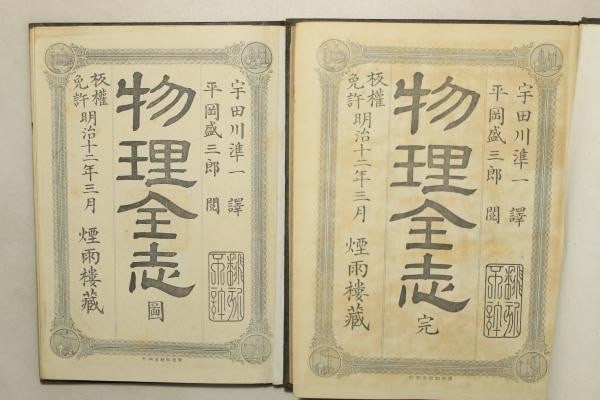 宇田川準一 譯
平岡盛三郎 閲
物理全志 圖
板權免許 明治十二年三月 煙雨樓藏
宇田川準一 譯
平岡盛三郎 閲
物理全志 完
板權免許 明治十二年三月 煙雨樓藏